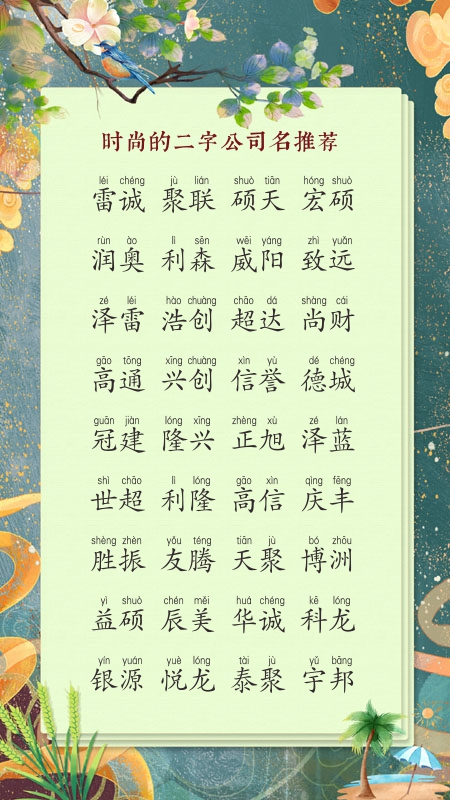 时尚的二字公司名推荐
léi chéng jù lián shuò tiān hóng shuò
雷诚 聚联 硕天 宏硕
rùn ào lì sēn wēi yáng zhì yuǎn
润奥 利森 威阳 致远
zé léi hào chuàng chāo dá shàng cái
泽雷 浩创 超达 尚财
gāo tōng xīng chuàng xìn yù dé chéng
高通 兴创 信誉 德城
guān jiàn lóng xīng zhèng xù zé lán
冠建 隆兴 正旭 泽蓝
shì chāo lì lóng gāo xìn qìng fēng
世超 利隆 高信 庆丰
shèng zhèn yǒu téng tiān jù bó zhōu
胜振 友腾 天聚 博洲
yì shuò chén měi huá chéng kē lóng
益硕 辰美 华诚 科龙
yín yuán yuè lóng tài jù yǔ bāng
银源 悦龙 泰聚 宇邦